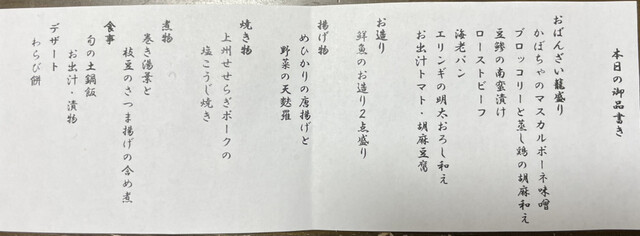 本日の御品書き
おばんざい籠盛り
かぼちゃのマスカルポーネ味噌
ブロッコリーと蒸し鶏の胡麻和え
豆鯵の南蛮漬け
ローストビーフ
海老パン
エリンギの明太おろし和え
お出汁トマト・胡麻豆腐
お造り
鮮魚のお造り2点盛り
揚げ物
めひかりの唐揚げと
野菜の天麩羅
焼き物
上州せせらぎポークの
塩こうじ焼き
煮物
巻き湯葉と
枝豆のさつま揚げの含め煮
食事
旬の土鍋飯
お出汁・漬物
デザート
わらび餅